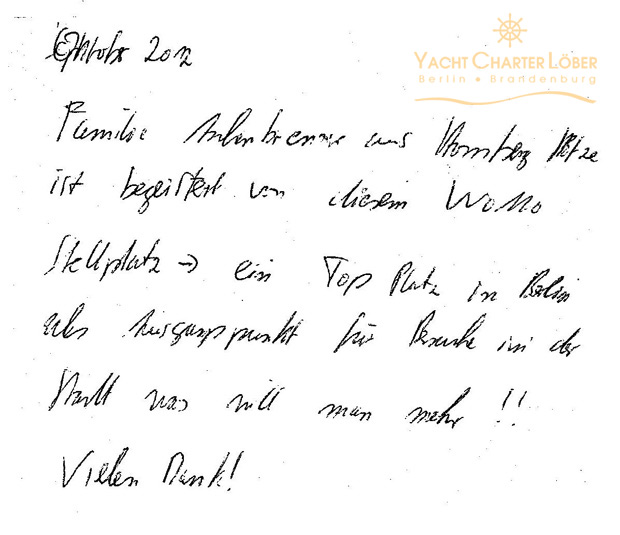 YACHT CHARTER LÖBER
Berlin • Brandenburg
Oktober 2012
Familie aus
ist begeistert von diesem WoMo
Stellplatz → ein Top Platz in Berlin
als Ausgangspunkt für Besuche in der
Stadt was will man mehr !!
Vielen Dank!